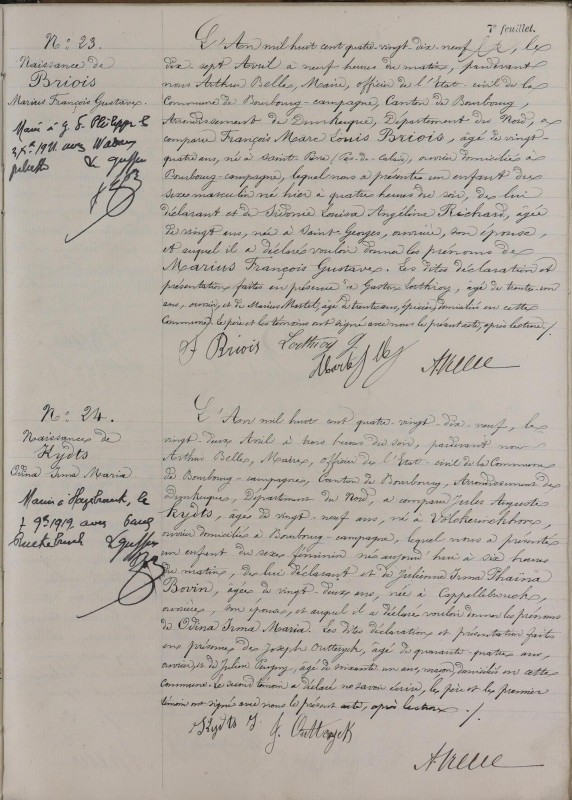 7e feuillet.
N°: 23.
Naissance de
Briois
Marius François Gustave.
Marié à G. S. Philippe le
1921 avec
Le greffier
L'An mil huit cent quatre-vingt-dix-neuf, le
dix sept Avril à neuf heures du matin, pardevant
nous Arthur Belle, Maire, officier de l'Etat-civil de la
Commune de Bourbourg-campagne, Canton de Bourbourg,
Arrondissement de Dunkerque, Département du Nord, a
comparu François Marc Louis Briois, âgé de vingt-
quatre ans, né à Saint (Pas-de-Calais), ouvrier domicilié à
Bourbourg-campagne, lequel nous a présenté un enfant du
sexe masculin né hier à quatre heures du soir, de lui
déclarant et de Sidonie Louisa Angélina Richard, âgée
de vingt ans, née à Saint-Georges, ouvrière, son épouse,
et auquel il a déclaré vouloir donner les prénoms de
Marius François Gustave. Les dites déclaration et
présentation faites en présence de Gaston Lorthioy, âgé de trente-un
ans, ouvrier, et de Marius Martel, âgé de trente ans, épicier, domiciliés en cette
Commune, le père et les témoins ont signé avec nous le présent acte, après lecture ./.
F Briois Lorthioy g.
Martel M
ABelle
N°: 24.
Naissance de
Kydts
Odina Irma Maria
Marié à Hazebrouck, le
7 9bre 1919 avec
Le greffier
L'An mil huit cent quatre-vingt-dix-neuf, le
vingt-deux Avril à trois heures du soir, pardevant nous
Arthur Belle, Maire, officier de l'Etat-civil de la Commune
de Bourbourg-campagne, Canton de Bourbourg, Arrondissement de
Dunkerque, Département du Nord, a comparu Jules Auguste
Kydts, âgé de vingt-neuf ans, né à Volckerinckhove,
ouvrier domicilié à Bourbourg-campagne, lequel nous a présenté
un enfant du sexe féminin née aujourd'hui à six heures
du matin, de lui déclarant et de Julienne Irma
âgée de vingt-deux ans, née à Cappellebrouck,
ouvrière, son épouse, et auquel il a déclaré vouloir donner les prénoms
de Odina Irma Maria. Les dites déclaration et présentation faites
en présence de Joseph Outteryck, âgé de quarante-quatre ans,
ouvrier, et de Julien âgé de soixante un ans, maçon, domiciliés en cette
Commune. Le second témoin a déclaré ne savoir écrire, le père et le premier
témoin ont signé avec nous le présent acte, après lecture ./.
Kydts J. J. Outteryck
ABelle